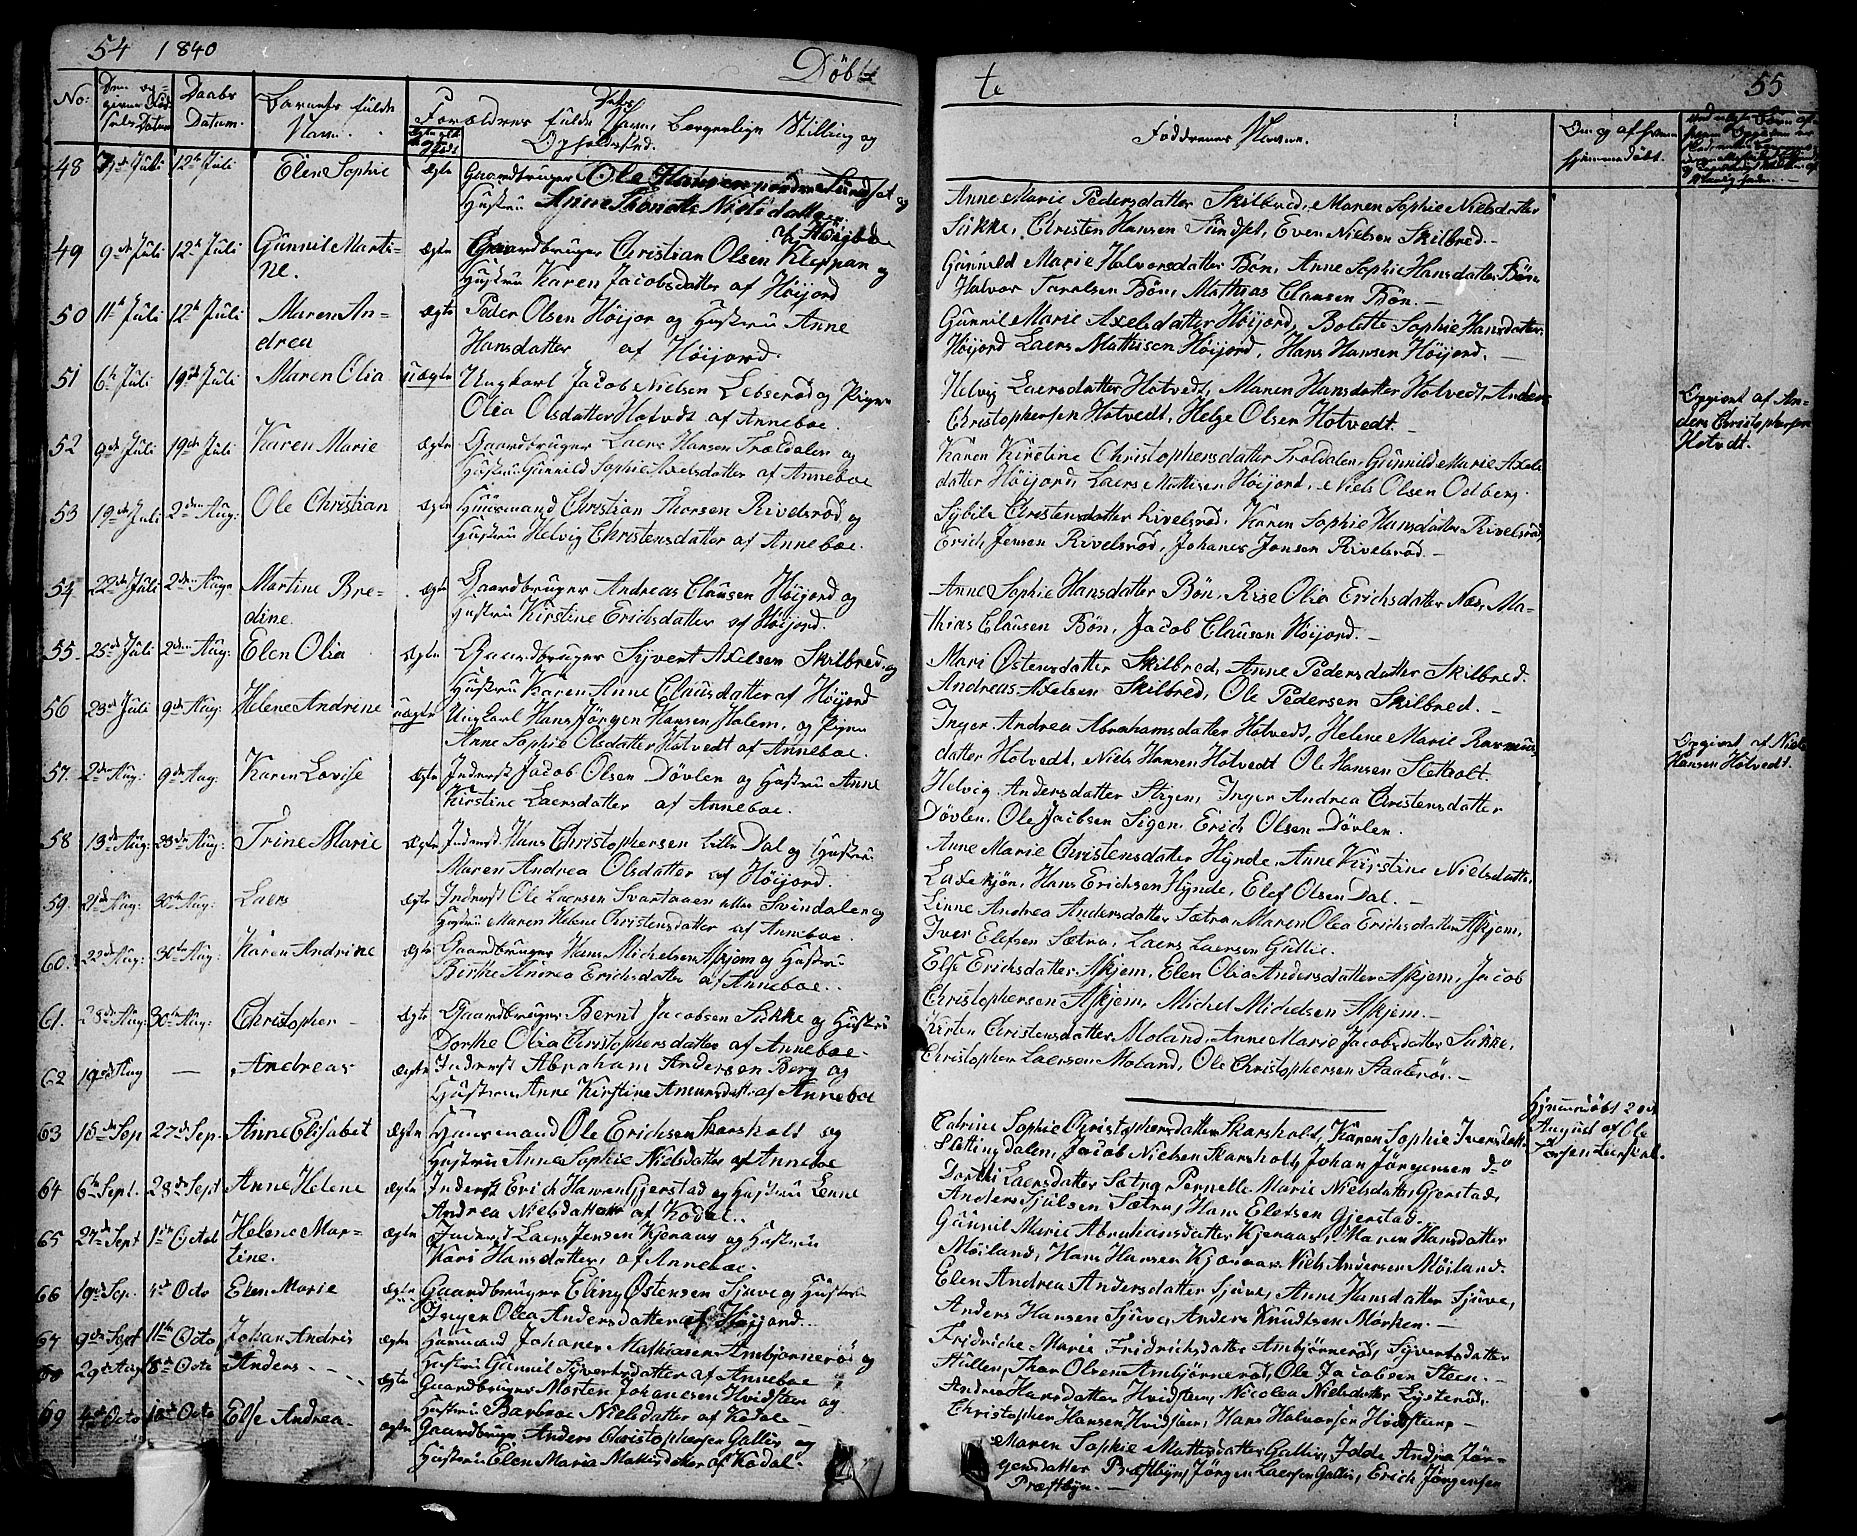 54 1840
Døb
te
55
No:
Daabs
Datum.
Barnets fulde
Navn.
Forældres fulde Navn, borgerlige Stilling og
Opholdssted.
Faddernes Navne.
48 12te Juli Elen Sophie ægte Gaardbruger Ole Hansen Sundset og
Hustru Anne Thonette Nielsdatter
Anne Marie Pedersdatter Skilbred, Maren Sophie Nielsdatter
Sükke, Christen Hansen Sundset, Even Nielsen Skilbred.
49 9de Juli 12te Juli Günnil Marti- ægte Gaardbruger Christian Olsen Kleppan og
ne. Hustru Karen Jacobsdatter af Höijord
Gunnild Marie Halvorsdatter Bön, Anne Sophie Hansdatter Bön
Halvor Bön, Mathias Clausen Bön.
50 11te Juli 12te Juli Maren An- ægte Peder Olsen Höijor og Hustru Anne
drea Hansdatter af Höijord.
Günnil Marie Axelsdatter Höijord, Bolette Sophie Hansdatter
Höijord Laers Mathisen Höijord, Hans Hansen Höijord.
51 6te Juli 19de Juli Maren Olia uægte Ungkarl Jacob Nielsen Lebserød og Pigen
Olia Olsdatter Hotvedt af Anneboe.
Helvig Laersdatter Hotvedt, Maren Hansdatter Hotvedt, Anders
Christophersen Hotvedt, Helge Olsen Hotvedt.
Opgivet af An-
ders Christophersen
Hotvedt.
52 9de Juli 19de Juli Karen Marie ægte Gaardbruger Laers Hansen Troldalen og
Hustru Gunnild Sophie Axelsdatter af Anneboe
Karen Kirstine Christophersdatter Troldalen, Gunnild Marie Axels
datter Höijord, Laers Mattisen Höijord, Niels Olsen Odberg.
53 19de Juli 2den Aug: Ole Christian ægte Huusmand Christian Thorsen Rivelsrød og
Hustru Helvig Christensdatter af Anneboe.
Sybile Christensdatter Rivelsrød, Karen Sophie Hansdatter Rivelsrød,
Erich Jensen Rivelsrød, Johanes Jonsen Rivelsrød.
54 22de Juli 2den Aug. Martine Bre- ægte Gaardbruger Andreas Clausen Höijord og
dine. Hustru Kirstine Erichsdatter af Höijord.
Anne Sophie Hansdatter Bön, Olia Erichsdatter Næs, Ma-
thias Clausen Bön, Jacob Clausen Höijord.
55 25de Juli 2den Aug: Elen Olia ægte Gaardbruger Syvert Axelsen Skilbred og
Hustru Karen Anne Clausdatter af Höijord
Mari Østensdatter Skilbred, Anne Pedersdatter Skilbred.
Andreas Axelsen Skilbred, Ole Pedersen Skilbred.
56 23de Juli 9de Aug: Helene Andrine uægte Ungkarl Hans Jørgen Hansen Holem, og Pigen
Anne Sophie Olsdatter Hotvedt af Anneboe.
Inger Andrea Abrahamsdatter Hotvedt, Helene Marie Rasmus
datter Hotvedt, Niels Hansen Hotvedt Ole Hansen Slettholt.
Opgivet af Niels
Hansen Hotvedt.
57. 2den Aug: 9de Aug: Karen Lovise ægte Inderst Jacob Olsen Dövlen og Hustru Anne
Kirstine Laersdatter af Anneboe.
Helvig Andersdatter Stigen, Inger Andrea Christensdatter
Dövlen, Ole Jacobsen Sigen, Erich Olsen Dövlen.
58 13de Aug: 23de Aug: Trine Marie ægte Inderst Hans Christophersen lille Dal og Hustru
Maren Andrea Olsdatter af Höijord.
Anne Marie Christensdatter Hynde, Anne Kirstine Nielsdatter
Laxeskjön, Hans Erichsen Hynde, Elef Olsen Dal.
59. 21de Aug: 30te Aug: Laers ægte Inderst Ole Laersen Svartaaen eller Svindalen og
Hustru Maren Helene Christensdatter af Anneboe.
Linne Andrea Andersdatter Sætra, Maren Olea Erichsdatter Askjem,
Iver Elefsen Sætra, Laers Laersen Gullie.
60. 22de Aug: 30te Aug: Karen Andrine ægte Gaardbruger Hans Michelsen Askjem og Hustru
Birthe Andrea Erichsdatter af Anneboe.
Else Erichsdatter Askjem, Elen Olia Andersdatter Askjem, Jacob
Christophersen Askjem, Michel Michelsen Askjem.
61. 28de Aug: 30te Aug: Christopher ægte Gaardbruger Bernt Jacobsen Sükke og Hustru
Dorthe Olia Christophersdatter af Anneboe.
Kirsten Christensdatter Moland, Anne Marie Jacobsdatter Sükke,
Christopher Laersen Moland, Ole Christophersen
62 19de Aug — Andreas ægte Inderst Abraham Andersen Berg og
Hustru Anne Kirstine Amunsdatt: af Anneboe
63 18de Sep 27de Sep. Anne Elisabet ægte Huusmand Ole Erichsen Skarsholt og
Hustru Anne Sophie Nielsdatter af Anneboe
Catrine Sophie Christophersdatter Skarsholt, Karen Sophie Iversdatt:
Slettingdalen, Jacob Nielsen Skarsholt, Johan Jörgensen do
Hjemmedöbt 20de
August af Ole
64 6te Sept. 28de Sept Anne Helene ægte Inderst Erich Hansen Gjerstad og Hustru Lenne
Andrea Nielsdatter af Kodal.
Dorthe Laersdatter Sætra, Pernelle Marie Nielsdatter Gjerstad,
Anders Sjulsen Sætra, Hans Elefsen Gjerstad.
65 27de Sept 1ste Octob Helene Mar- ægte Inderst Laers Jensen Kjeraas og Hustru
tine. Kari Hansdatter, af Anneboe.
Günnil Marie Abrahamsdatter Kjeraas, Maren Hansdatter
Möiland, Hans Hansen Kjæraas Niels Andersen Möiland.
66 19de Sep. Octo Elen Marie ægte Gaardbruger Eling Østensen Sjuve og Hustru
Inger Olea Andersdatter af Höijord.
Elen Andrea Andersdatter Sjuve, Anne Hansdatter Sjuve,
Anders Hansen Sjuve, Anders Knudtsen Mörken.
67 9de Sept 11te Octo Johan Andris ægte Huusmand Johanes Mathiasen Ambjörneröd og
Hustru Günnil Syvertsdatter af Anneboe
Fridriche Marie Fridrichsdatter Ambjörneröd, Syvertsdatter
Hallen, Thor Olsen Ambjörneröd, Ole Jacobsen Steen.
68 29de Aug 18de Octo Anders ægte Gaardbruger Morten Johanesen Hvidsteen og
Hustru Barbroe Nielsdatter af Kodal
Andrea Hansdatter Hvidsteen, Nicolea Nielsdatter
Christopher Hansen Hvidsteen, Hans Halvorsen Hvidsteen.
69 4de Octo 18de Octo Else Andrea ægte Gaardbruger Anders Christophersen Gallis og
Hustru Elen Maria Mattisdatter af Kodal.
Maren Sophie Mattisdatter Gallis, Andrea Jør-
gensdatter Præstbyn, Jørgen Laersen Gallis, Erich Jørgensen
Præstbyn.